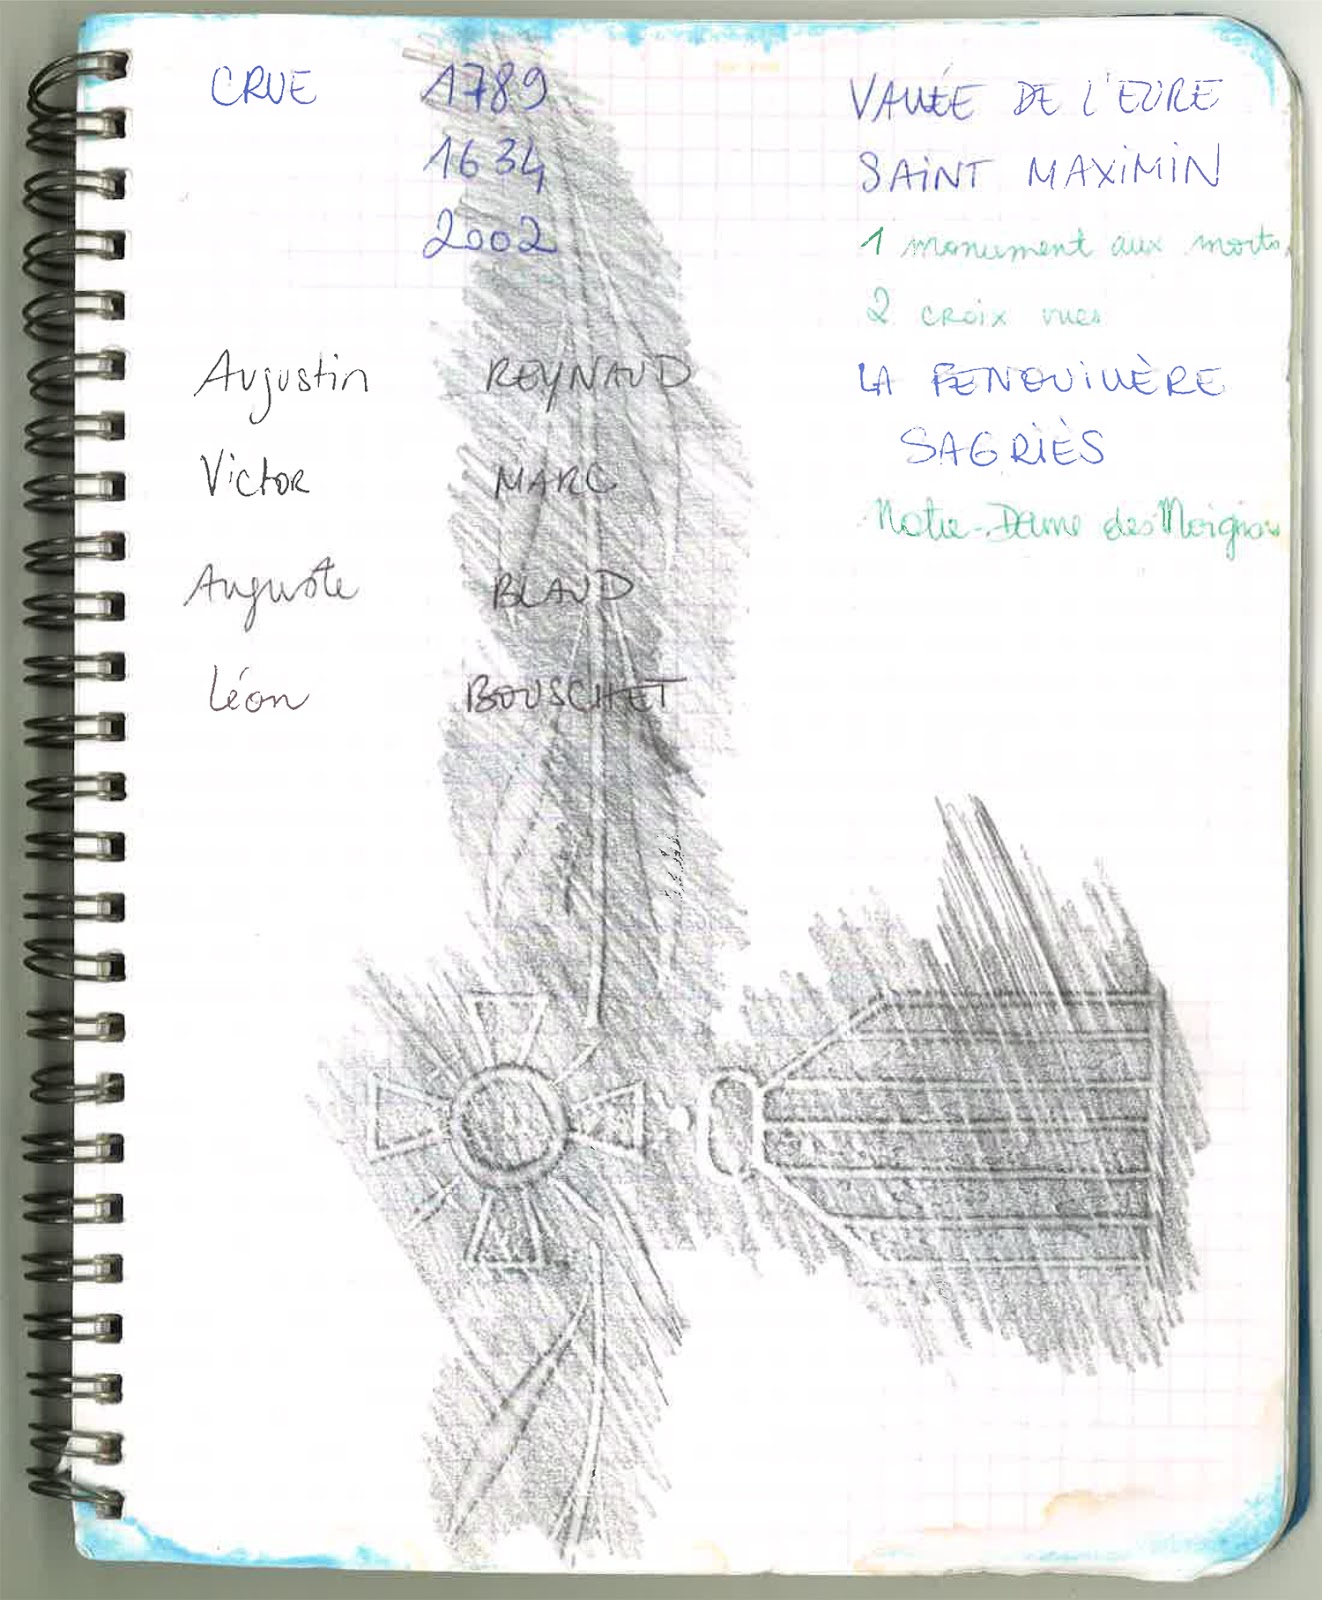 CRUE 1789
1634
2002
Augustin REYNAUD
Victor MARC
Auguste BLAUD
Léon BOUSCHET
VALLÉE DE L'EURE
SAINT MAXIMIN
1 monument aux morts
2 croix vues
LA FENOUILLÈRE
SAGRIÈS
Notre-Dame des